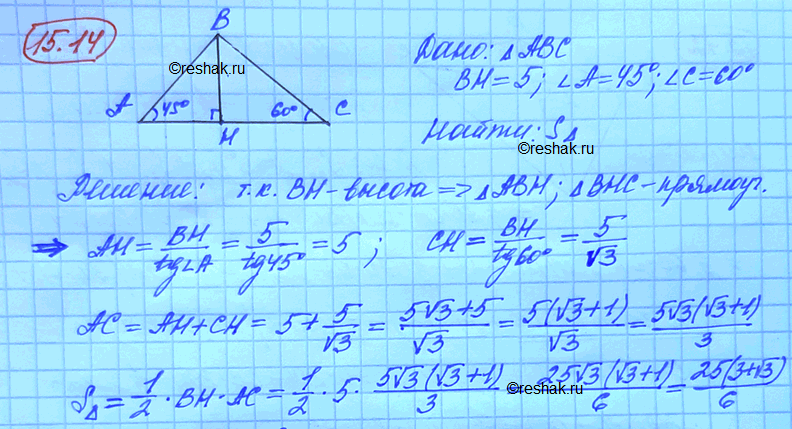 15.14
B
©reshak.ru
A 45° 60° C
H
Дано: △ABC
BH=5; ∠A=45°; ∠C=60°
Найти: S△
©reshak.ru
Решение: т.к. BH-высота => △ABH; △BHC-прямоуг.
=> AH = BH/tg∠A = 5/tg45° = 5; CH = BH/tg60° = 5/√3
AC = AH+CH = 5+5/√3 = (5√3+5)/√3 = 5(√3+1)/√3 = 5√3(√3+1)/3
S△ = 1/2 · BH · AC = 1/2 · 5 · 5√3(√3+1)/3 = 25√3(√3+1)/6 = 25(3+√3)/6
©reshak.ru